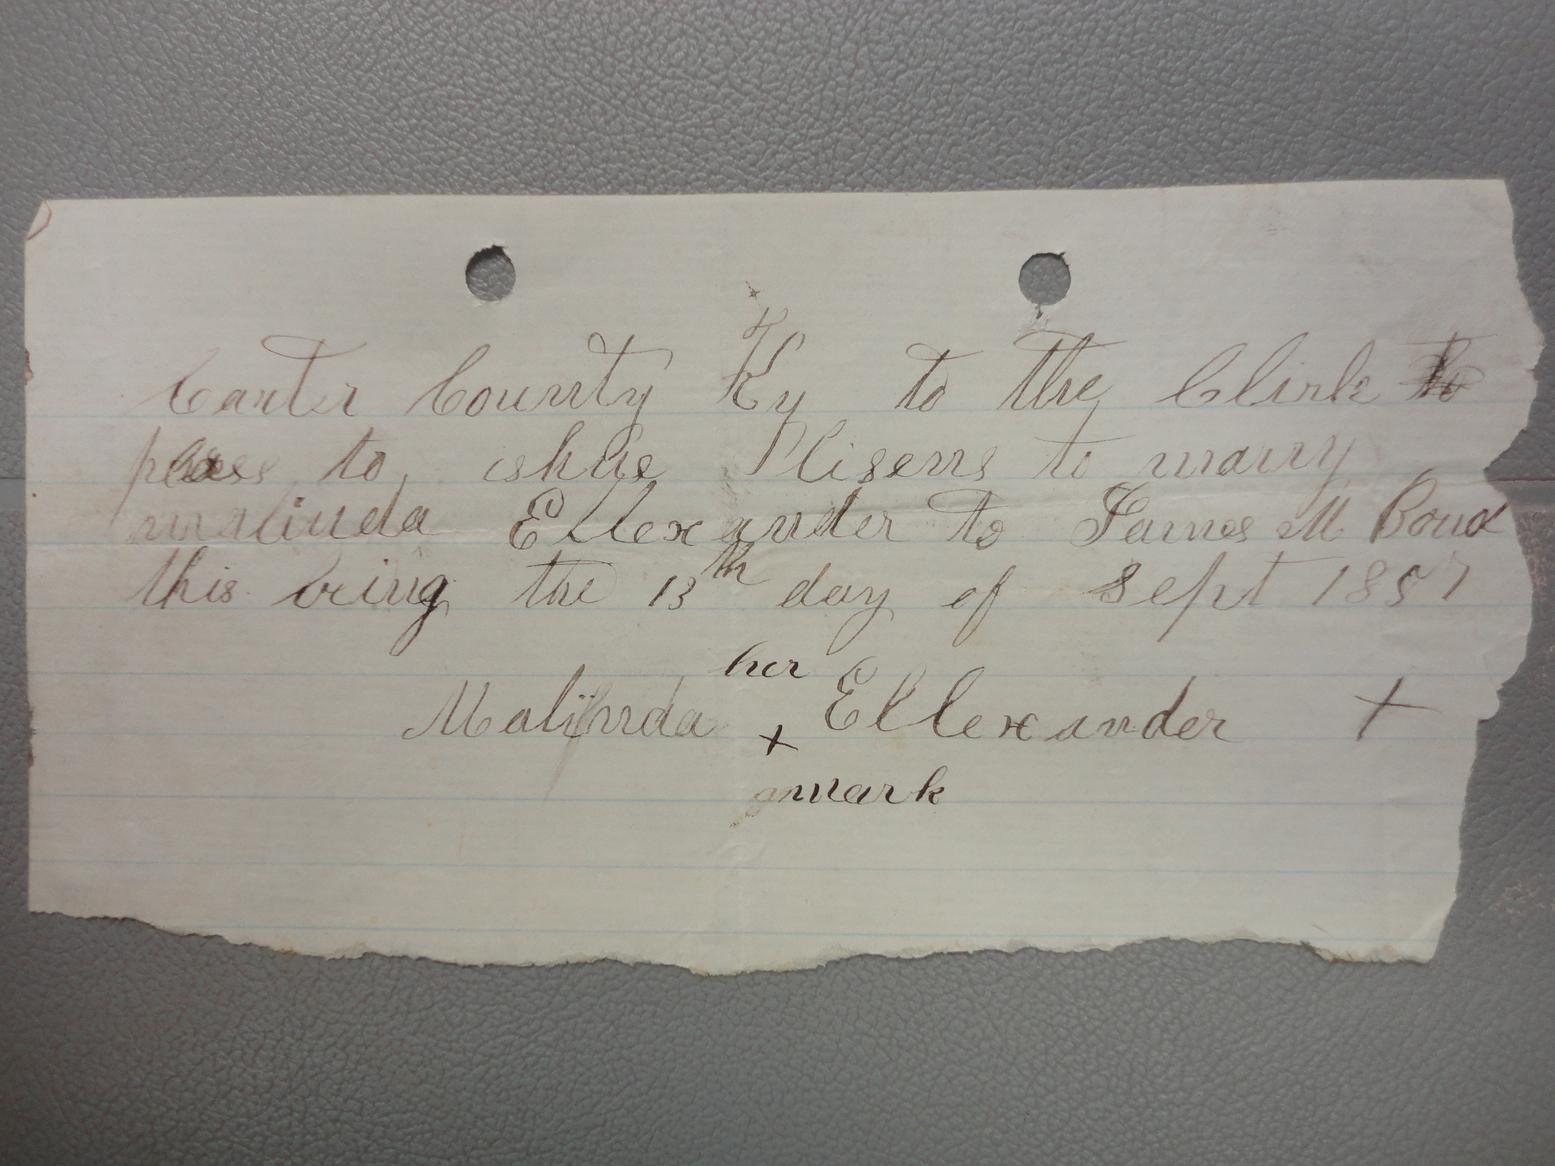 Carter County Ky to the Clirk to
pleass to ishue Llisens to marry
malinda Ellexander to James M. Boud
this being the 13th day of Sept 1857
her
Malinda + Ellexander +
mark